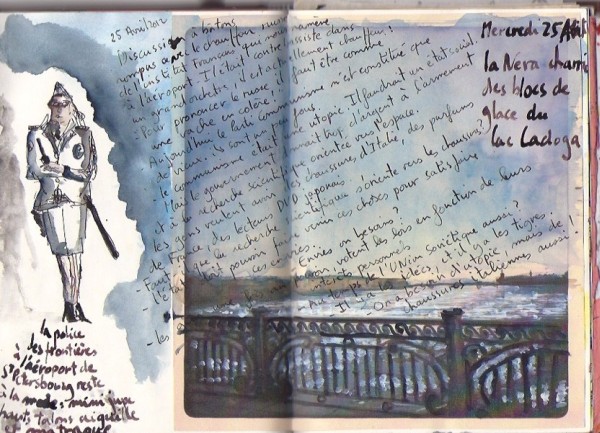 25 Avril 2012
Discussion à bâtons
rompus avec le chauffeur russe
de l'institut Français qui nous
à l'aéroport. Il était contre
un grand orchestre, il est actuellement chauffeur :
- Pour prononcer le russe, il faut être comme
une vache en colère !
Aujourd'hui le Parti Communisme n'est constitué que
de vieux : ils sont un peu fous.
- le communisme était une utopie. Il faudrait un état social.
- Mais le gouvernement trop d'argent à l'armement
et à la recherche scientifique orientée vers l'espace.
les gens veulent aussi des chaussures d'Italie, des parfums
de France, des lecteurs DVD japonais.
- Faut que la recherche scientifique s'oriente vers le chausson ?
- L'état doit pourvoir faire venir ces choses pour satisfaire
ces envies.
- Envies ou besoins ?
- les votent les lois en fonction de leurs
intérêts personnels
- au temps de l'Union soviétique aussi ?
- Il y a les idées, et il y a les tigres.
- On a besoin d'utopie, mais de
chaussures italiennes aussi !
Mercredi 25 Avril
la Néva charrie
des blocs de
glace du
lac Ladoga
la police
des frontières
à l'aéroport de
St Petersbourg reste
à la mode : mini jupe
hauts talons aiguille
et matraque